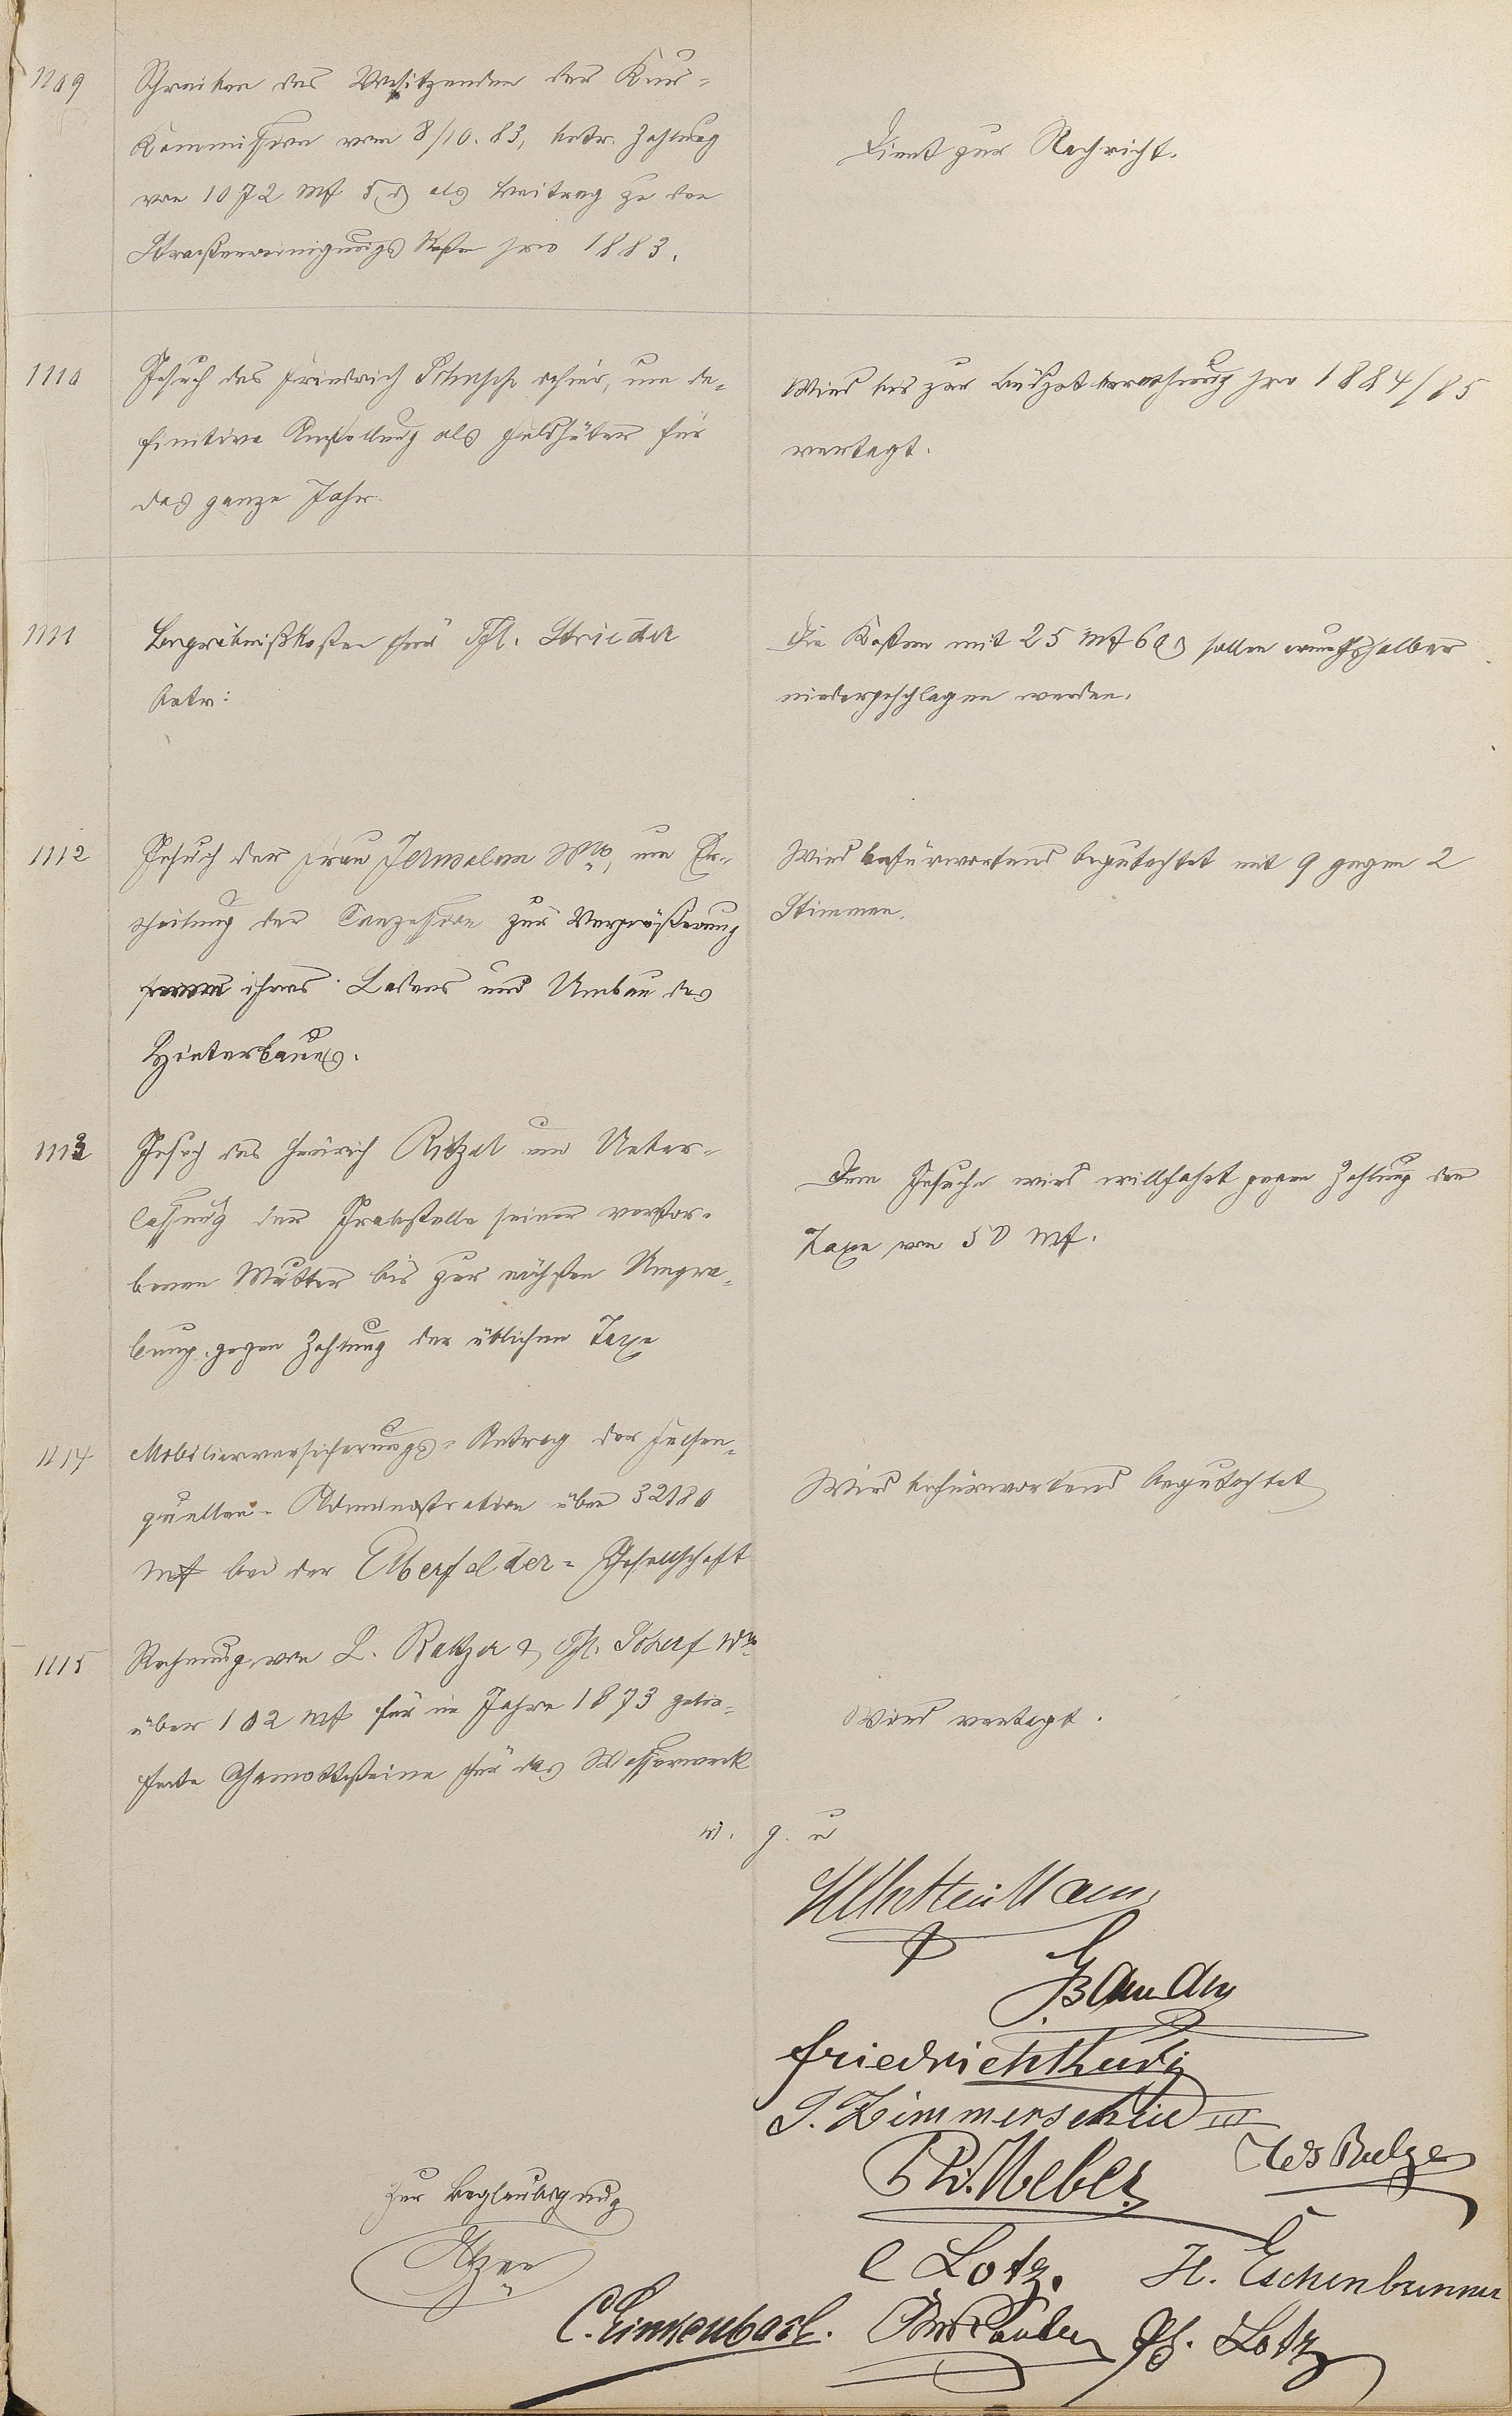 1109
Schreiben des Vorsitzenden der Kur-
Kommission vom 8/10. 83, betr. Zahlung
von 1072 Mk 5 ₰ als Beitrag zu den
Straßenreinigungs Kosten pro 1883.
Dient zur Nachricht.
1110
Gesuch des Friedrich um de-
finitive Anstellung als Feldhüter für
das ganze Jahr.
Wird bis zur Budgetberathung pro 1884/85
vertagt.
1111
Begräbnißkosten für Phl. Strieder
betr:
Die Kosten mit 25 Mk 60 ₰ sollen armuthshalber
niedergeschlagen werden.
1112
Gesuch der Frau Jerusalem Wwe, um Er-
theilung der Conzession zur Vergrößerung
ihres Ladens und Umbau des
Hinterbaues.
Wird befürwortend begutachtet mit 9 gegen 2
Stimmen.
1113
Gesuch des Heinrich Ritzel um Ueber-
lassung der Grabstelle seiner verstor-
benen Mutter bis zur nächsten Umgra-
bung gegen Zahlung der üblichen Taxe
Dem Gesuche wird willfahrt gegen Zahlung der
Taxe von 50 Mk.
1114
Mobiliarversicherungs-Antrag der
quellen-Administration über 32180
Mk bei der Elberfelder-Gesellschaft
Wird befürwortend begutachtet
1115
Rechnung von L. Baltzer & Phl. Scherf Wwe
über 102 Mk für im Jahre 1873 gelie-
ferte Chamottsteine für das Wasserwerk
Wird vertagt.
v. g. u
Friedrich Ludwig
J. Zimmerschied III
Ph. Weber
C Lotz.
H. Eschenbrenner
Zur Beglaubigung
C. Linkenbach.
Ph. Lotz